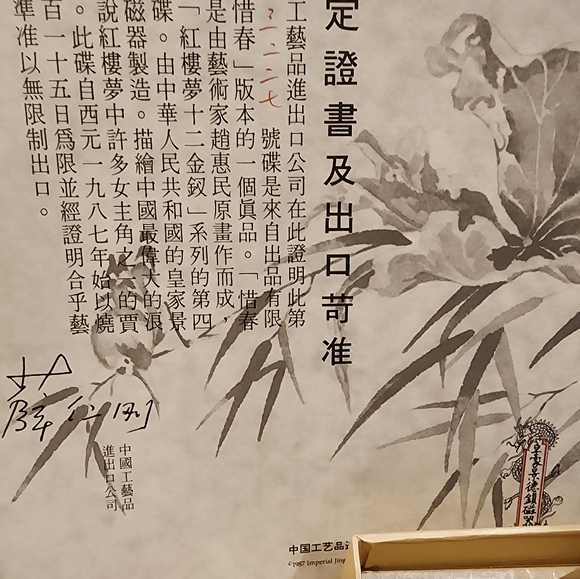 定證書及出口苛准
工藝品進出口公司在此證明此第
號碟是來自出品有限
惜春」版本的一個眞品。「惜春
是由藝術家趙惠民原畫作而成,
「紅樓夢十二金釵」系列的第四
碟。由中華人民共和國的皇家景
磁器製造。描繪中國最偉大的浪
說紅樓夢中許多女主角之一的賈
。此碟自西元一九八七年始以燒
百一十五日爲限並經證明合乎藝
準准以無限制出口。
中國工藝品
進出口公司
皇家景德鎮磁器
中国工艺品
©1987 Imperial Jing